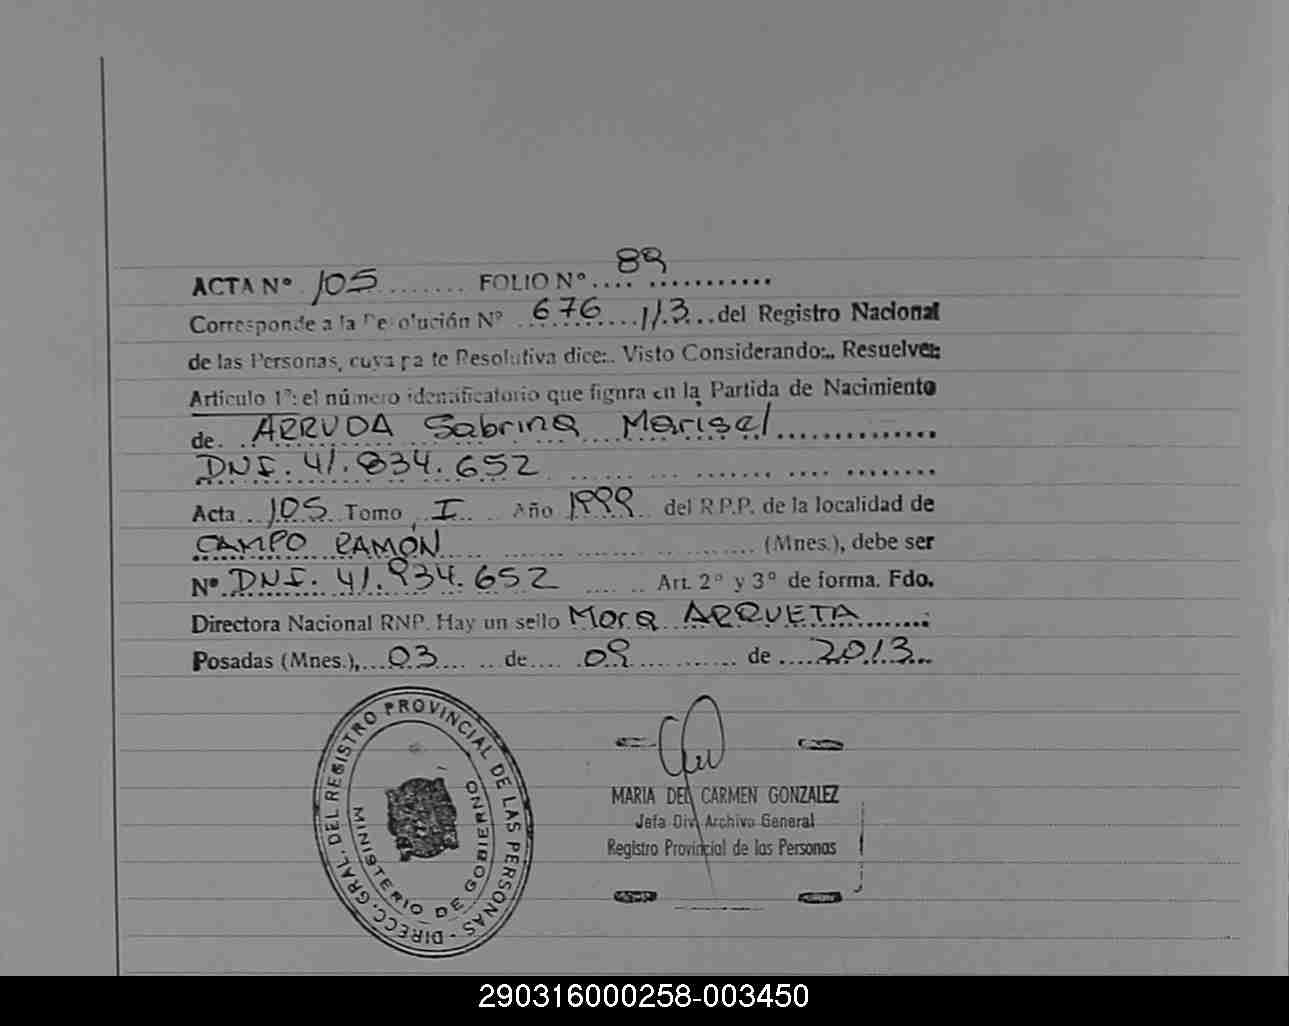 ACTA Nº 105 ........ FOLIO Nº .... 89 ...........
Corresponde a la Resolución Nº 676 1/3 del Registro Nacional
de las Personas, cuya parte Resolutiva dice:.. Visto Considerando:.. Resuelve:
Artículo 1º: el número identificatorio que figura en la Partida de Nacimiento
de. ARRUDA Sabrina Marisel ..............
DNI. 41.834.652 ...... ....... .... ........
Acta .. 105 Tomo I Año 1999 del R.P.P. de la localidad de
CAMPO RAMÓN .............. (Mnes.), debe ser
Nº DNI. 41.934.652 ...... Art. 2º y 3º de forma. Fdo.
Directora Nacional RNP. Hay un sello Mora ARRUETA
Posadas (Mnes.), 03 de 09 de 2013
DIRECC. GRAL. DEL REGISTRO PROVINCIAL DE LAS PERSONAS -
MINISTERIO DE GOBIERNO
MARIA DEL CARMEN GONZALEZ
Jefa Div. Archivo General
Registro Provincial de las Personas
290316000258-003450